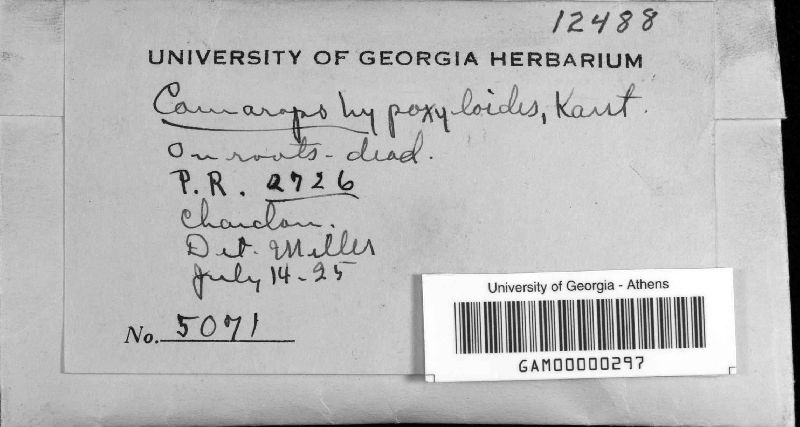 12488
UNIVERSITY OF GEORGIA HERBARIUM
Camarops hypoxyloides, Karst.
On roots - dead.
P.R. 2726
Chardon.
Det. Miller
July 14 - 25
No. 5071
University of Georgia - Athens
GAM00000297